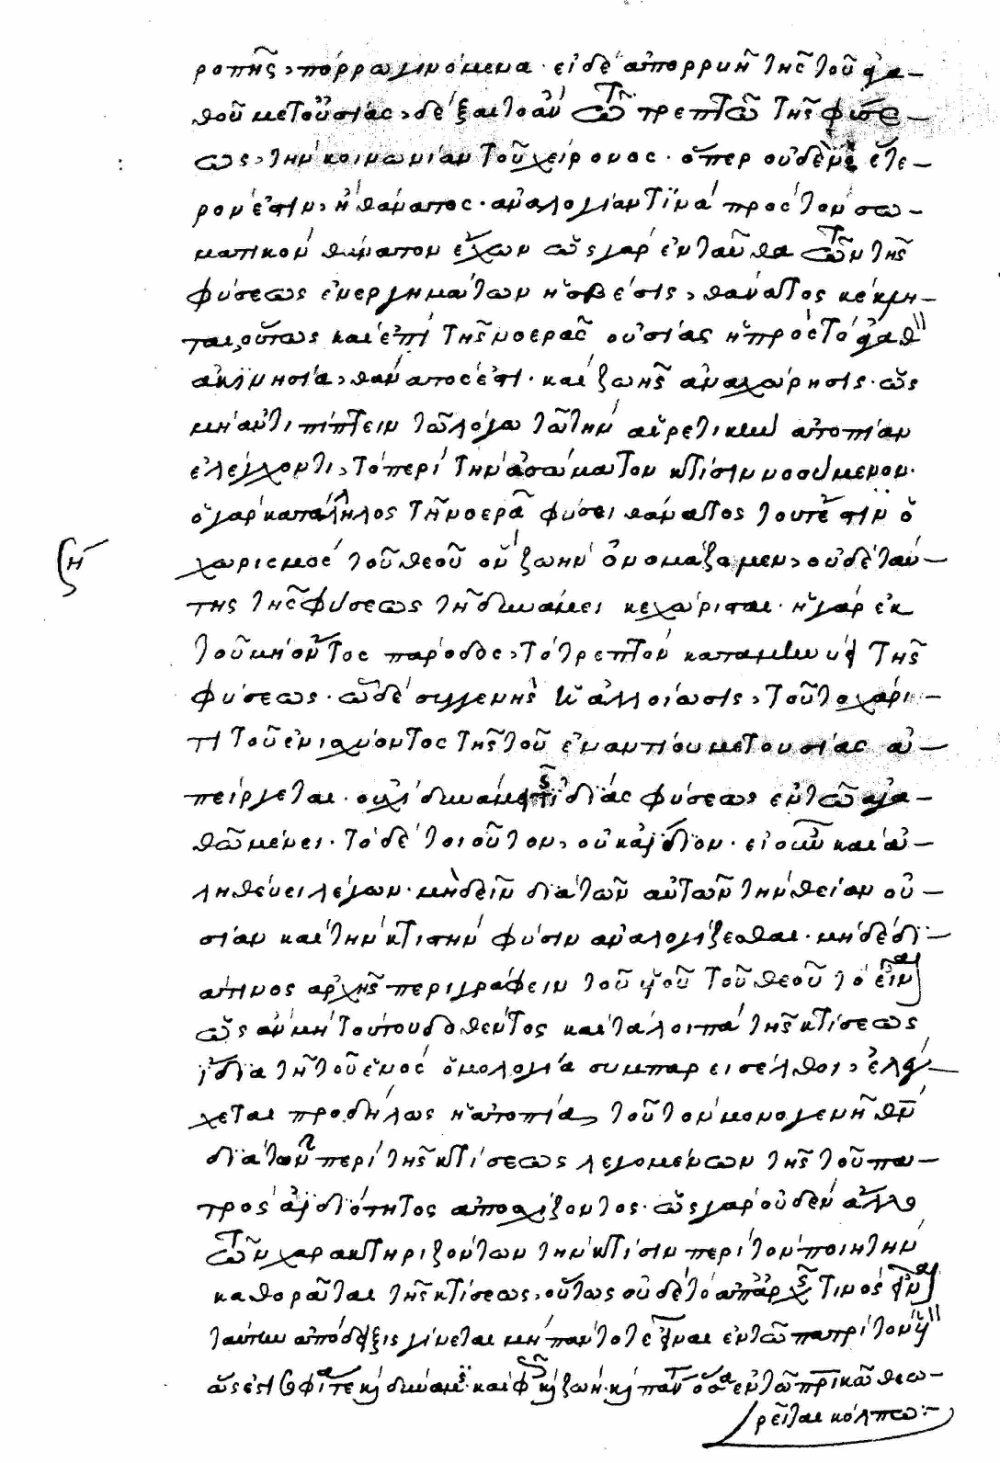 ροπῆς, πόρρω γινόμενα· εἰ δὲ ἀπορρυῇ τῆς τοῦ ἀγα-
θοῦ μετουσίας, δέξαιτο ἂν τῷ τρεπτῷ τῆς φύσε-
ως, τὴν κοινωνίαν τοῦ χείρονος· ὅπερ οὐδὲν ἕτε-
ρον ἐστιν, ἢ θάνατος· ἀναλογίαν τινὰ πρὸς τὸν σω-
ματικὸν θάνατον ἔχων ὡς γὰρ ἐνταῦθα τῶν τῆς
φύσεως ἐνεργημάτων ἡ σβέσις, θάνατος κέκλη-
ται, οὕτως καὶ ἐπὶ τῆς νοερᾶς οὐσίας ἡ πρὸς τὸ ἀγαθ
ἀκινησία, θάνατος ἐστι· καὶ ζωῆς ἀναχώρησις· ὡς
μὴ ἀντιπίπτειν τῷ λόγω τῷ τὴν αἱρετικὴν ἀτοπίαν
ἐλέγχοντι, τὸ περὶ τὴν ἀσώματον κτίσιν νοούμενον·
ὁ γὰρ κατάλληλος τῇ νοερᾷ φύσει θάνατος τουτέστιν ὁ
χωρισμὸς τοῦ θεοῦ ὃν ζωὴν ὀνομάζομεν, οὐδὲ ταύ-
της τῆς φύσεως τῇ δυνάμει κεχώρισται· ἡ γὰρ ἐκ
τοῦ μὴ ὄντος πάροδος, τὸ τρεπτὸν καταμηνύει τῆς
φύσεως· ᾧ δὲ συγγενὴς ἡ ἀλλοίωσις, τοῦτο χάρι-
τι τοῦ ἐνισχύοντος τῆς τοῦ ἐναντίου μετουσίας ἀ-
πείργεται· οὐχὶ δυνάμει τῆς ἰδίας φύσεως ἐν τῷ ἀγα-
θῷ μένει· τὸ δὲ τοιοῦτον, οὐκ ἀΐδιον· εἰ οὖν καὶ ἀ-
ληθεύει λέγων· μὴ δεῖν διὰ τῶν αὐτῶν τὴν θείαν οὐ-
σίαν καὶ τὴν κτιστὴν φύσιν ἀναλογίζεσθαι· μὴδὲ δι-
άτινος ἀρχῆς περιγράφειν τοῦ υἱοῦ τοῦ θεοῦ τὸ εἶναι
ὡς ἂν μὴ τούτου δοθέντος καὶ τὰ λοιπὰ τῆς κτίσεως
ἴδια τῇ τοῦ ἑνὸς ὁμολογία συμπαρεισέλθοι, ἐλέγ-
χεται προδήλως ἡ ἀτοπία, τοῦ τὸν μονογενῆ θν
διὰ τῶν περὶ τῆς κτίσεως λεγομένων τῆς τοῦ πα-
τρὸς ἀϊδιότητος ἀποσχίζοντος· ὡς γὰρ οὐδὲν ἄλλο
τῶν χαρακτηριζόντων τὴν κτίσιν περὶ τὸν ποιητὴν
καθορᾶται τῆς κτίσεως, οὕτως οὐδὲ τὸ ἀπ' ἀρχῆς τινὸς εἶναι
ταύτην ἀπόδειξις γίνεται μὴ πάντοτε εἶναι ἐν τῷ πατρὶ τὸν υἱ
ὅς ἐστι σοφία τε καὶ δύναμις· καὶ φῶς καὶ ζωή· καὶ πάντα ὅσα ἐν τῷ πρικῷ θεω-
ρεῖται κόλπω:-